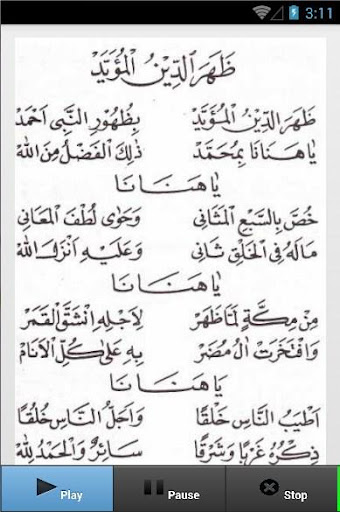 3:11
ظَهَرَ الدِّينُ الْمُؤَيَّدْ
ظَهَرَ الدِّينُ الْمُؤَيَّدْ بِظُهُورِ النَّبِى اَحْمَدْ
يَا هَنَانَا بِمُحَمَّدْ ذٰلِكَ الْفَضْلُ مِنَ اللهْ
يَا هَنَانَا
خُصَّ بِالسَّبْعِ الْمَثَانِى وَحَوٰى لُطْفَ الْمَعَانِى
مَالَهُ فِى الْخَلْقِ ثَانِى وَعَلَيْهِ اَنْزَلَ اللهْ
يَا هَنَانَا
مِنْ مَكَّةٍ لَمَّا ظَهَرْ لِاَجْلِهِ انْشَقَّ الْقَمَرْ
وَافْتَخَرَتْ اٰلُ مُضَرْ بِهِ عَلٰى كُلِّ الْاَنَامْ
يَا هَنَانَا
اَطْيَبُ النَّاسِ خَلْقًا وَاَجَلُّ النَّاسِ خُلُقًا
ذِكْرُهُ غَرْبًا وَشَرْقًا سَائِرٌ وَالْحَمْدُ لِلهْ
Play Pause Stop